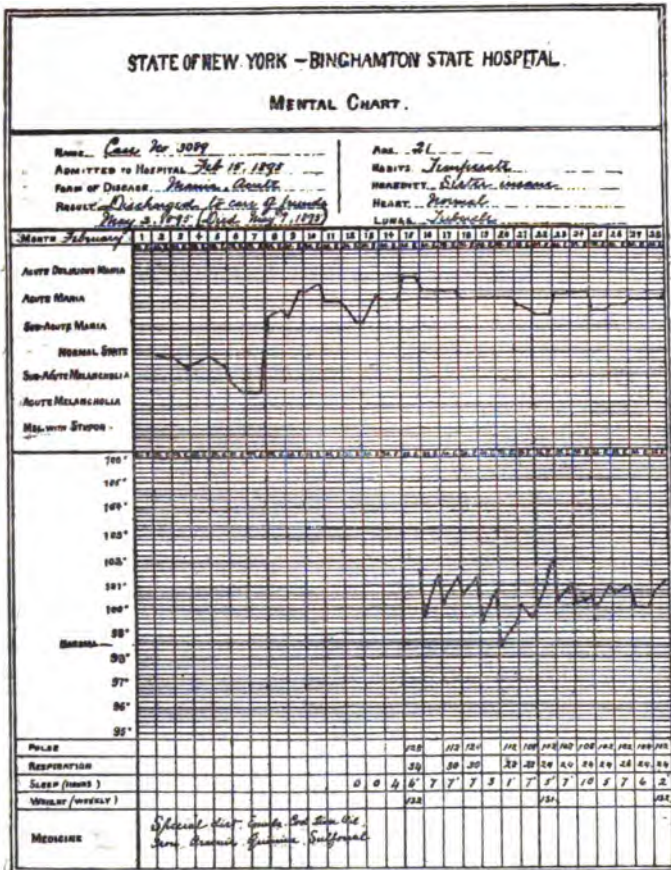 STATE OF NEW YORK – BINGHAMTON STATE HOSPITAL.
MENTAL CHART.
NAME Case No 3089
ADMITTED TO HOSPITAL Feb 15, 1898
FORM OF DISEASE Mania, Acute
RESULT Discharged to care of friends
May 2, (Died May 7,
AGE 21
HABITS Temperate
HEREDITY Sister insane
HEART Normal
LUNGS
MONTH February 1 2 3 4 5 6 7 8 9 10 11 12 13 14 15 16 17 18 19 20 21 22 23 24 25 26 27 28
ACUTE DELIRIOUS MANIA
ACUTE MANIA
SUB-ACUTE MANIA
NORMAL STATE
SUB-ACUTE MELANCHOLIA
ACUTE MELANCHOLIA
MEL. WITH STUPOR
106°
105°
104°
103°
102°
101°
100°
99°
NORMAL
98°
97°
96°
95°
PULSE
RESPIRATION
SLEEP (HOURS) 0 0 4 6 7 7 7 3 1 7 5 7 10 5 7 6 2
WEIGHT (WEEKLY) 132
MEDICINE
Special diet Cod Liver Oil,
Iron, Arsenic, Quinine, Sulfonal